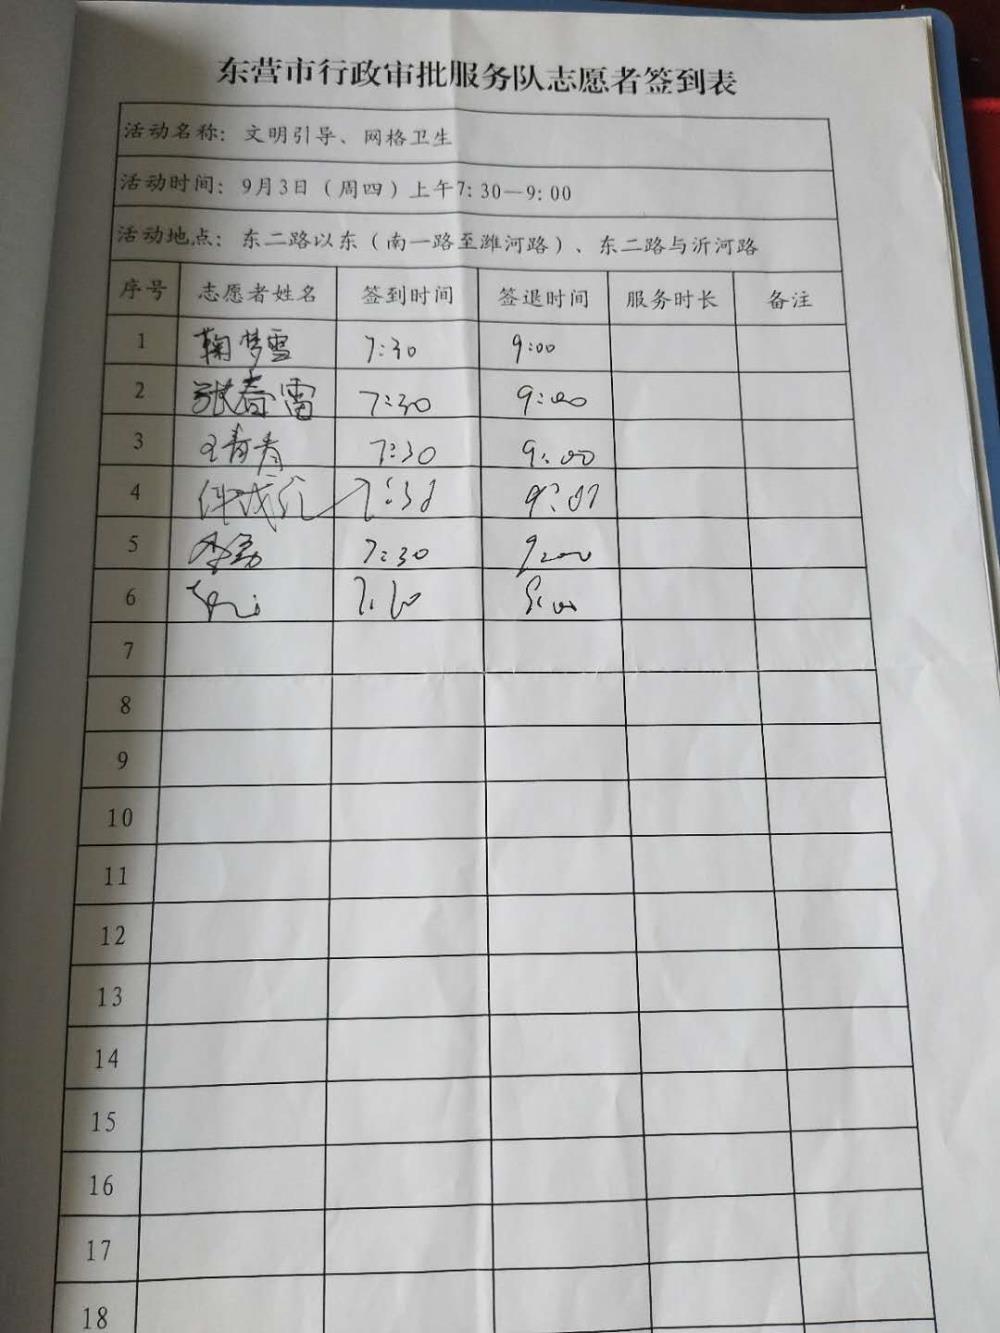 东营市行政审批服务队志愿者签到表
活动名称：文明引导、网格卫生
活动时间：9月3日（周四）上午7:30—9:00
活动地点：东二路以东（南一路至潍河路）、东二路与沂河路
序号 志愿者姓名 签到时间 签退时间 服务时长 备注
1 鞠梦雪 7:30 9:00
2 张春雷 7:30 9:00
3 王青青 7:30 9:00
4 7:30 9:00
5 7:30 9:00
6 9:00
7
8
9
10
11
12
13
14
15
16
17
18